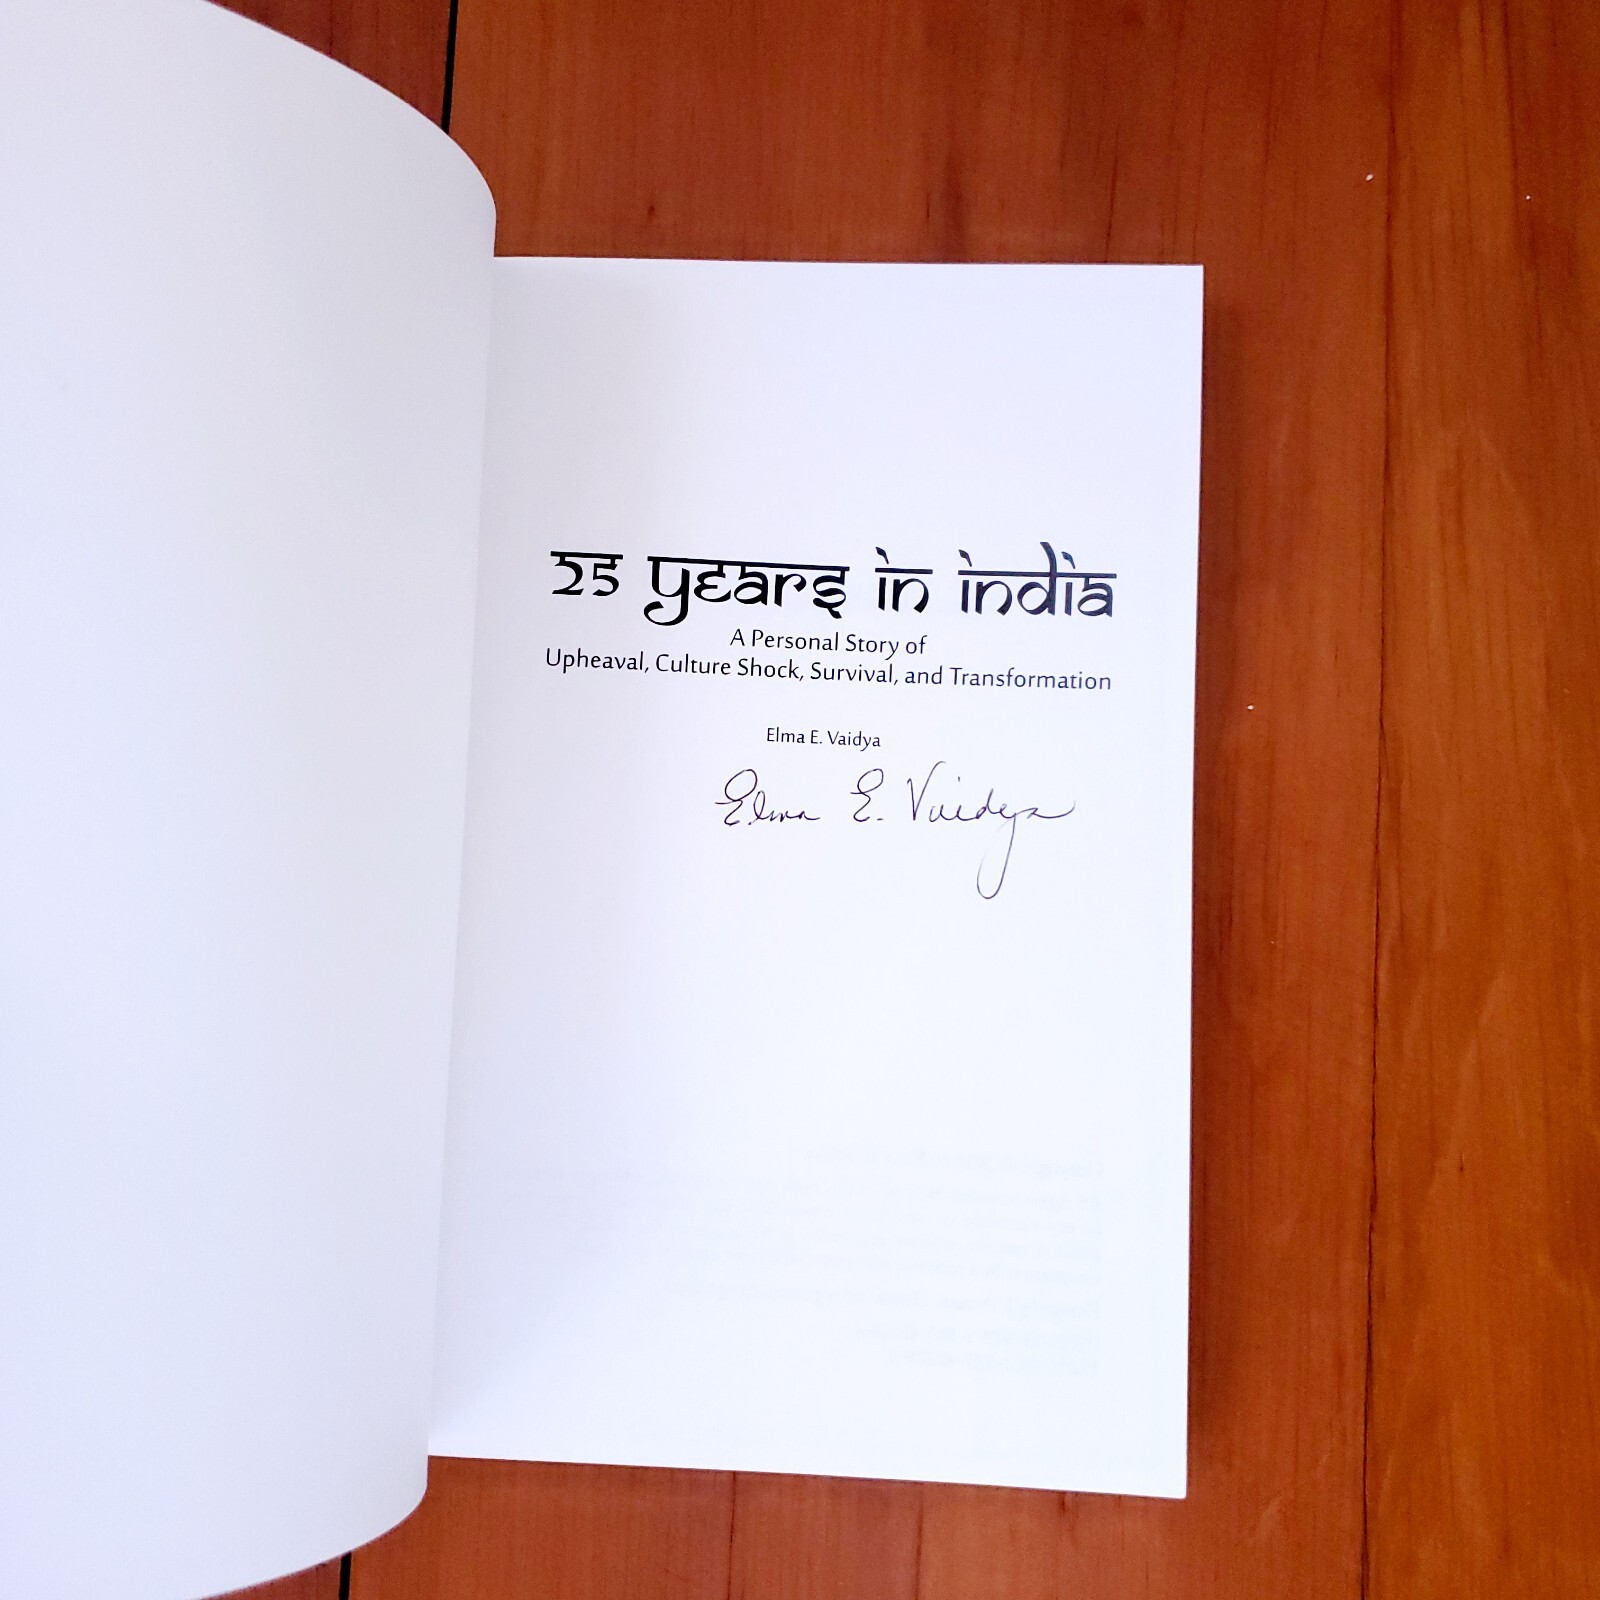 25 years in india
A Personal Story of
Upheaval, Culture Shock, Survival, and Transformation
Elma E. Vaidya
Elma E. Vaidya